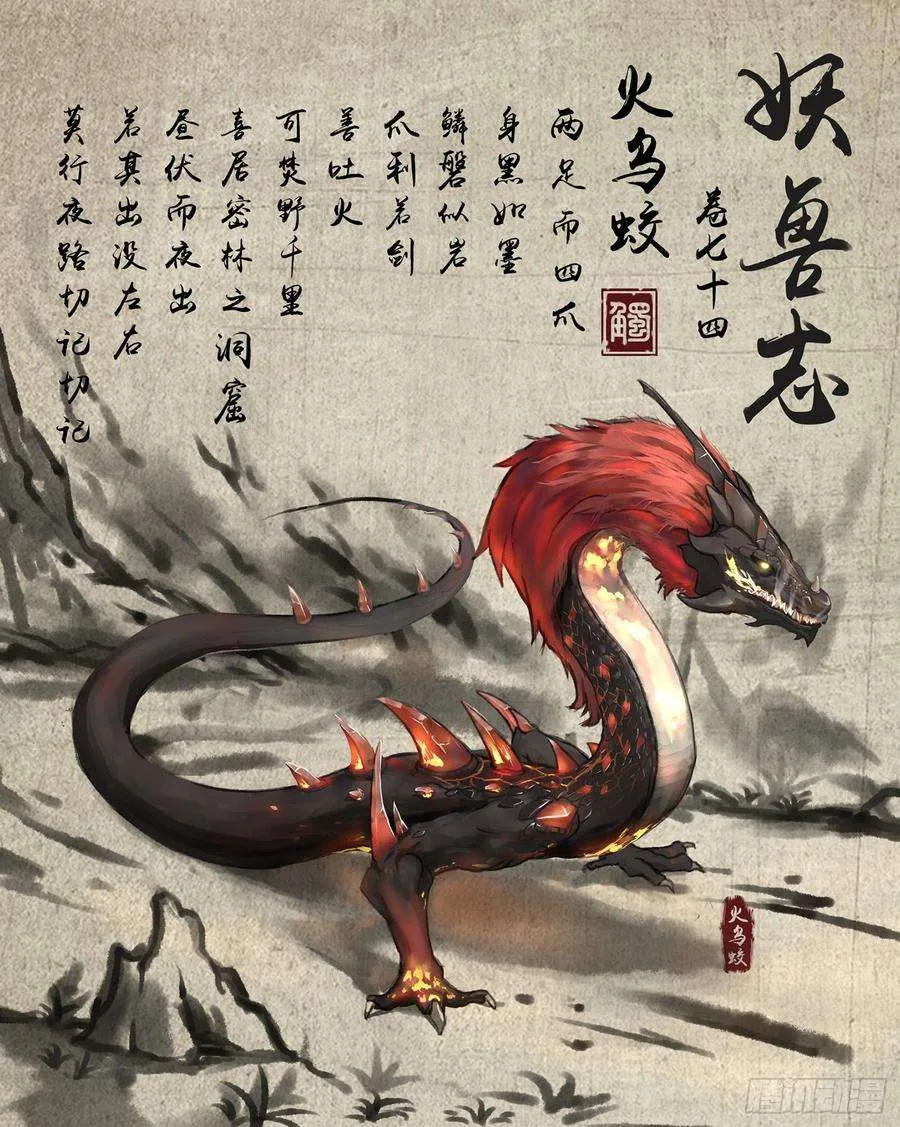 妖兽志
卷七十四
火乌蛟
两足而四爪
身黑如墨
鳞磐似岩
爪利若剑
善吐火
可焚野千里
喜居密林之洞窟
昼伏而夜出
若其出没左右
莫行夜路切记切记
火乌蛟
腾讯动漫